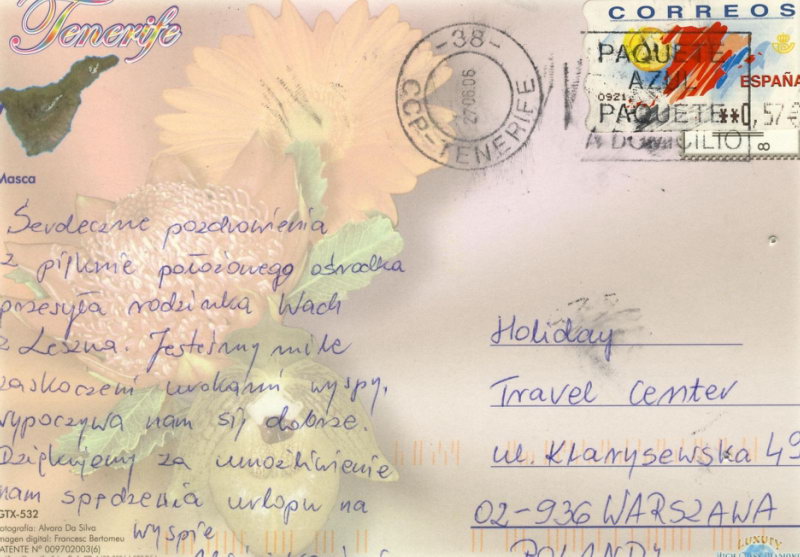 Tenerife
Masca
CORREOS
ESPAÑA
0921
**0,57
8
PAQUETE
AZUL
PAQUETE
A DOMICILIO
-38-
27 06 06
CCP-TENERIFE
Serdeczne pozdrowienia
z pięknie położonego ośrodka
przesyła rodzinka Wach
z Leszna. Jesteśmy mile
zaskoczeni urokami wyspy,
wypoczywa nam się dobrze.
Dziękujemy za umożliwienie
nam spędzenia urlopu na
wyspie
Holiday
Travel Center
ul. Kłarysewska 49
02-936 WARSZAWA
POLAND
GTX-532
Fotografía: Alvaro Da Silva
Imagen digital: Francesc Bertomeu
PATENTE Nº 009702003(6)
LUXURY